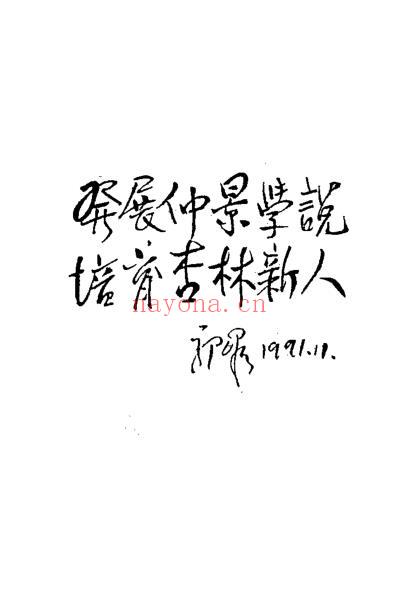 發展仲景學說
培育杏林新人
nayona.cn
1991.11.